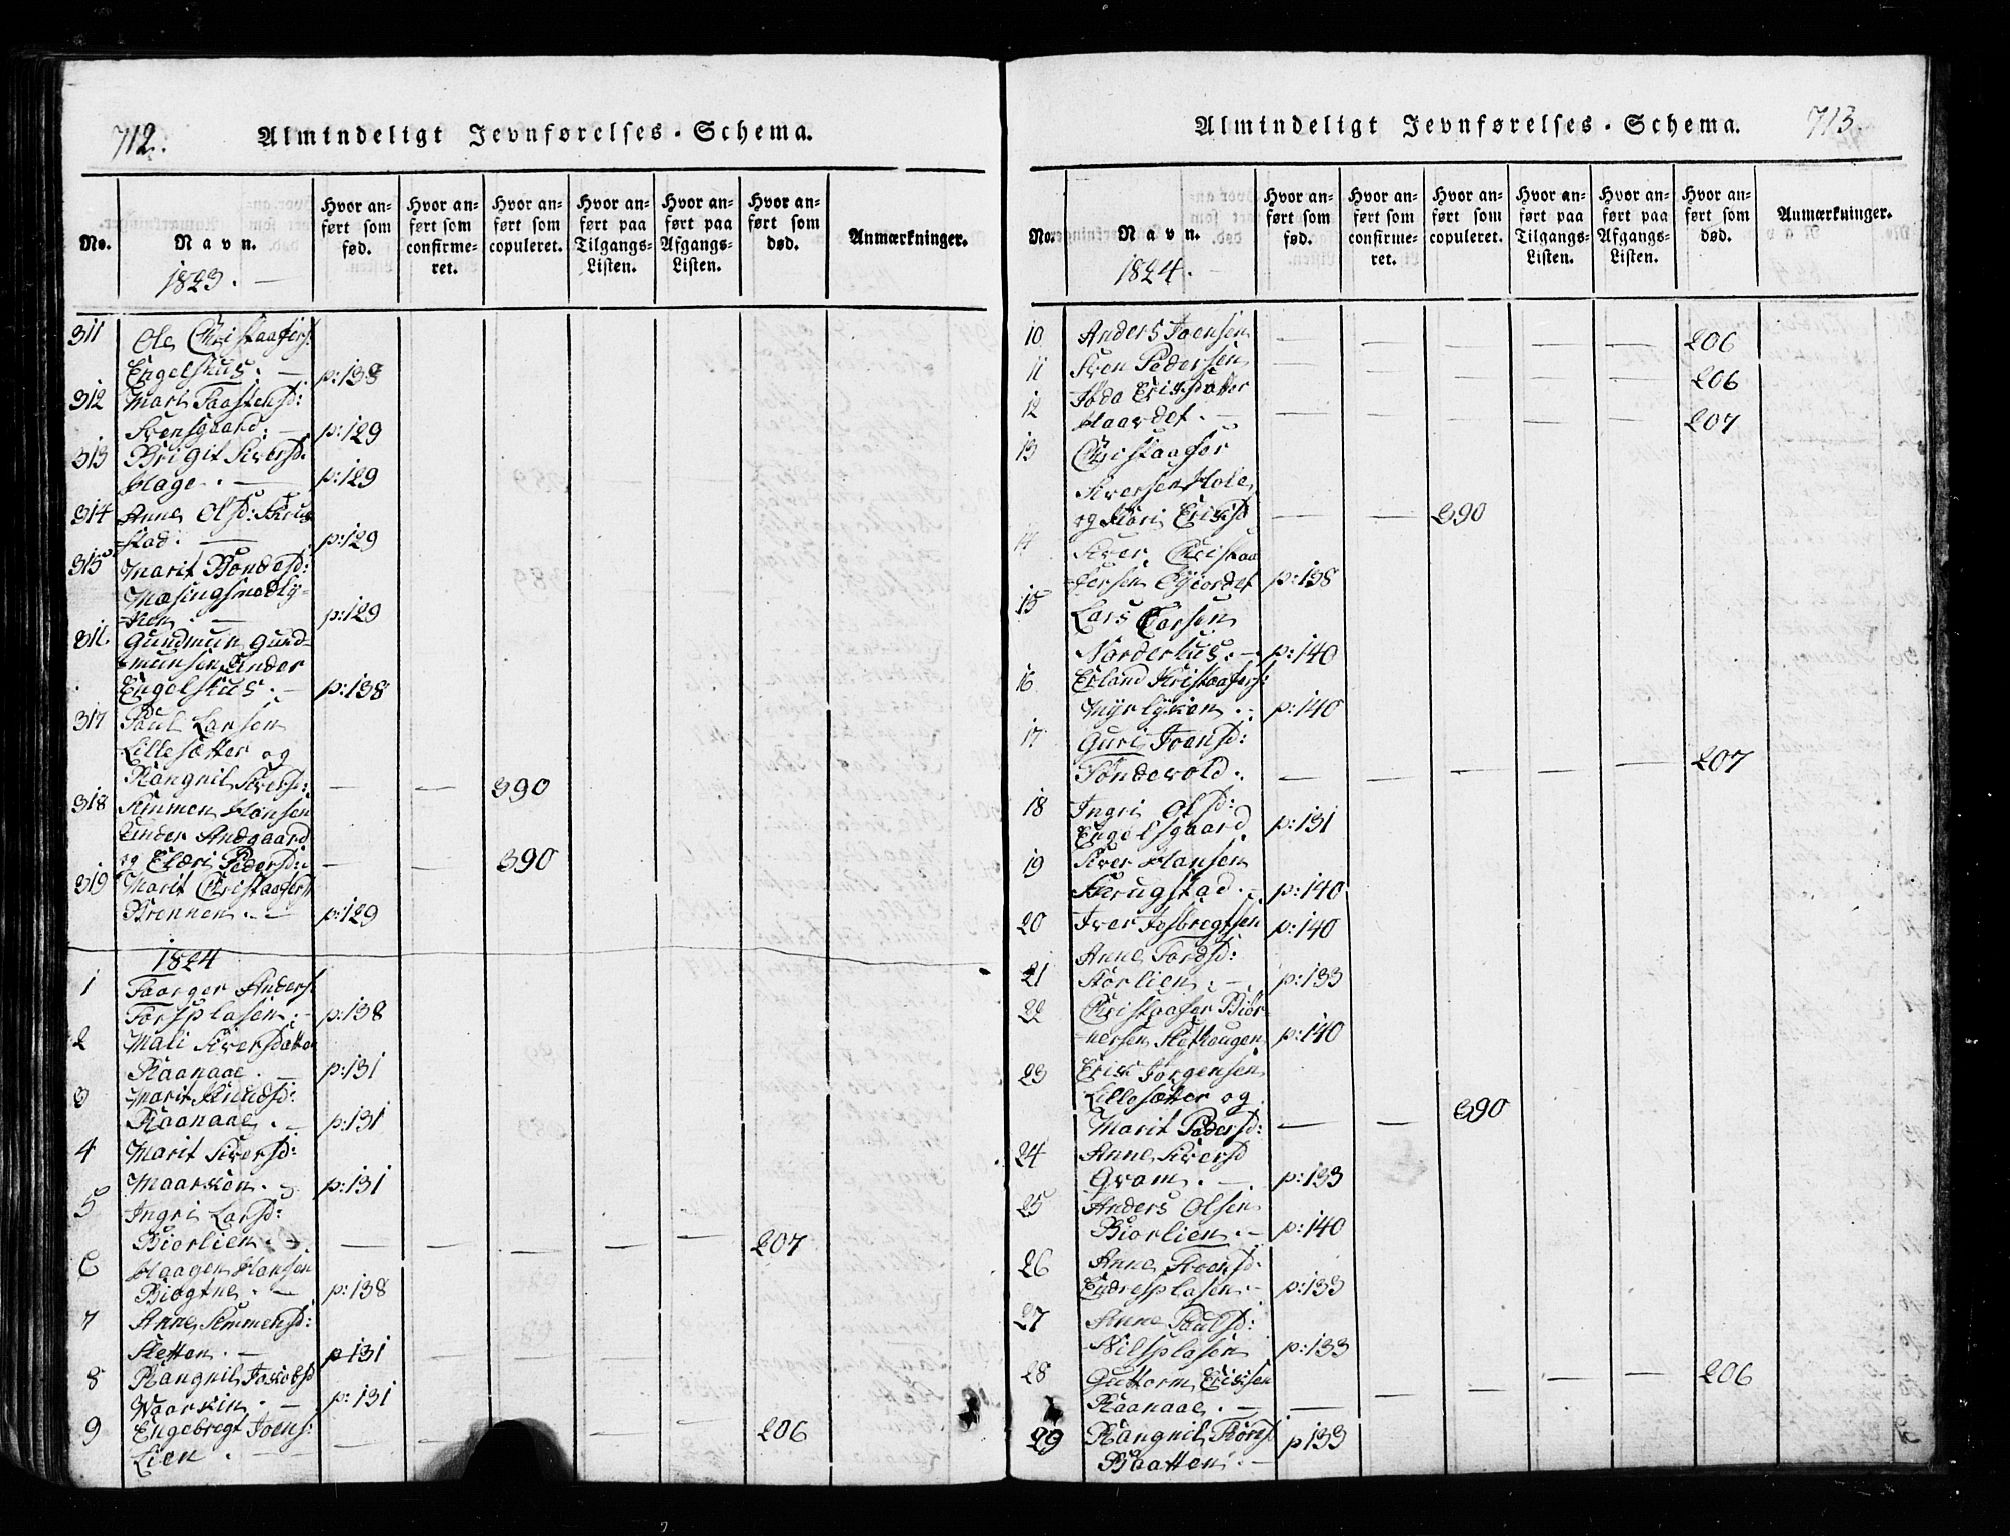 712.
Almindeligt Jevnførelses-Schema.
No.
Navn.
1823.
Hvor anført som født.
Hvor anført som confirmeret.
Hvor anført som copuleret.
Hvor anført paa Tilgangs-Listen.
Hvor anført paa Afgangs-Listen.
Hvor anført som død.
Anmærkninger.
311 Ole Christaafers:
Engelshus. p:138
312 Mari Taastensd:
Svensgaard. p:129
313 Brigit Siversd.
Hage. p:129
314 Anne Olsd: Skrug
stad. p:129
315 Marit Bondesd:
Mæsingsmodly-
ken p:129
316. Gundmun Gund-
munsen under
Engelshus. p:138
317 Paul Larsen
Lillesætter og
Rangnil Siversd: — — 390
318 Simmen Hansen
under Andgaard
og Eldri Pedersd: — — 390
319 Marit Christaafersd
Brennen. p:129
1824
1 Taarger Anders:
Torsplasen. p:138
2 Mali Siversdatter
Raanaae. p:131
3 Marit Knudsd:
Raanaae. p:131
4 Marit Siversd:
Maarsken. p:131
5 Ingri Larsd:
Biorlien. — — — — — 207
6 Haagen Hansen
Biogtne. p:138
7 Anne Simmensd:
Sletten. p:131
8 Rangnil Jakobsd
Waarskin. p:131
9 Engebregt Joens:
Lien. — — — — 206
713
Almindeligt Jevnførelses-Schema.
No.
Navn.
1824.
Hvor anført som fød.
Hvor anført som confirmeret.
Hvor anført som copuleret.
Hvor anført paa Tilgangs-Listen.
Hvor anført paa Afgangs-Listen.
Hvor anført som død.
Anmærkninger.
10 Anders Joensen — — — — — 206
11 Sven Pedersen — — — — — 206
12 Joda Eriksdatter
Haardet. — — — — — 207
13 Christaafor
Siversen Hole
og Kari Eriksd — — 390
14 Siver Christaa
fersen Oyjordet p:138
15 Lars Larsen
Norderhus. p:140
16 Erland Kristaafers:
Myrlyken. p:140
17 Guri Joensd:
Tondevold. — — — — — 207
18 Ingri Olsd:
Engelsgaard p:131
19 Siver Hansen
Skrugstad. p:140
20 Iver Josbregtsen p:140
Anne Tordsd:
21 Storlien. p:133
22 Christaafer Biør-
nersen Slethaugen p:140
23 Erik Jorgensen
Lillesætter og
Marit Pedersd: — — 390
24 Anne Siversd
Qvam. p:133
25 Anders Olsen
Biorlien. p:140
26 Anne Joensd:
Endresplasen p:133
27 Anne Paulsd:
Nilsplasen p:133
28 Guttorm Eriksen
Raanaae. — — — — — 206
29 Rangnil Torsd p133
Baatten.